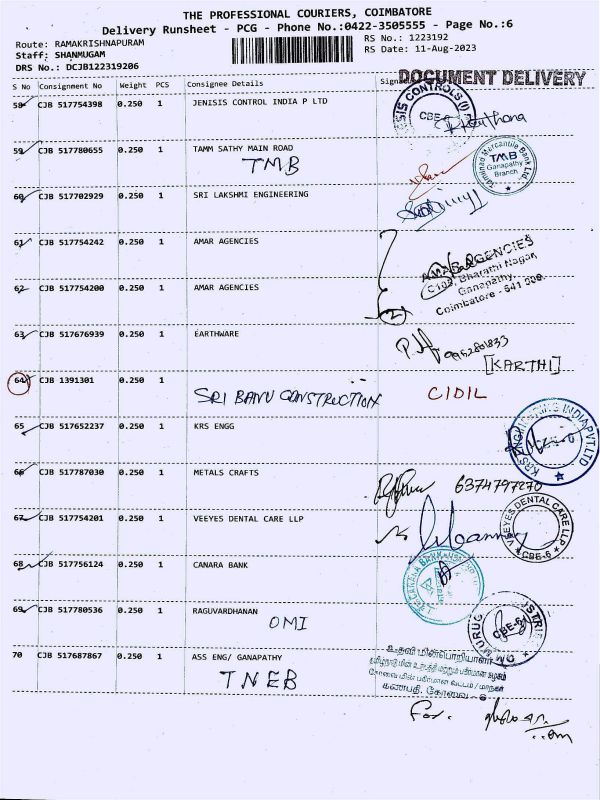 THE PROFESSIONAL COURIERS, COIMBATORE
Delivery Runsheet - PCG - Phone No.:0422-3505555 - Page No.:6
Route: RAMAKRISHNAPURAM
RS No.: 1223192
Staff: SHANMUGAM
RS Date: 11-Aug-2023
DRS No.: DCJB122319206
DOCUMENT DELIVERY
S No Consignment No Weight PCS Consignee Details
58 CJB 517754398 0.250 1 JENISIS CONTROL INDIA P LTD
59 CJB 517780655 0.250 1 TAMM SATHY MAIN ROAD
TMB
Tamilnad Mercantile Bank Ltd.
TMB
Ganapathy
Branch
60 CJB 517702929 0.250 1 SRI LAKSHMI ENGINEERING
61 CJB 517754242 0.250 1 AMAR AGENCIES
AMAR AGENCIES
Bharathi Nagar,
Ganapathy,
Coimbatore - 641 006.
62 CJB 517754200 0.250 1 AMAR AGENCIES
2
63 CJB 517676939 0.250 1 EARTHWARE
[KARTHI]
64 CJB 1391301 0.250 1
SRI BANU CONSTRUCTION CIDIL
65 CJB 517652237 0.250 1 KRS ENGG
KRS ENGINEERING INDIA PVT.LTD
66 CJB 517787030 0.250 1 METALS CRAFTS
6374797270
67 CJB 517754201 0.250 1 VEEYES DENTAL CARE LLP
VEEYES DENTAL CARE LLP
CBE-6
68 CJB 517756124 0.250 1 CANARA BANK
69 CJB 517780536 0.250 1 RAGUVARDHANAN
OMI
CBE-6
70 CJB 517687867 0.250 1 ASS ENG/ GANAPATHY
TNEB
உதவி மின்பொறியாளர்
கணபதி, கோவை - 6
For.